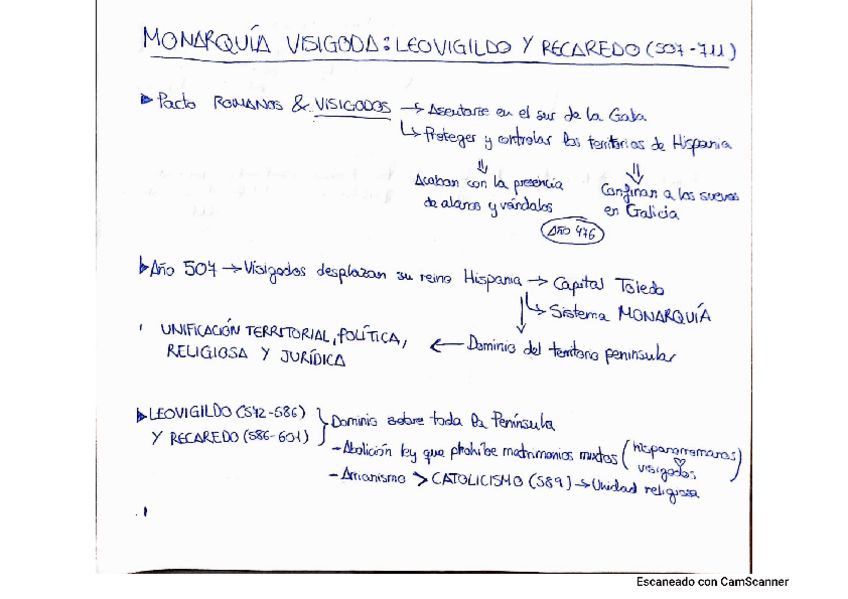 MONARQUÍA VISIGODA: LEOVIGILDO Y RECAREDO (507-711)
Pacto ROMANOS & VISIGODOS → Asentarse en el sur de la Galia
↳ Proteger y controlar los territorios de Hispania
⇓ ⇓
Acaban con la presencia de alanos y vándalos
Confinan a los suevos en Galicia
Año 476
Año 507 → Visigodos desplazan su reino Hispania → Capital Toledo
↳ Sistema MONARQUÍA
↓
UNIFICACIÓN TERRITORIAL, POLÍTICA, ← Dominio del territorio peninsular
RELIGIOSA Y JURÍDICA
LEOVIGILDO (572-586) Dominio sobre toda la Península
Y RECAREDO (586-601) - Abolición ley que prohíbe matrimonios mixtos (hispanorromanos y visigodos)
- Arrianismo > CATOLICISMO (589) → Unidad religiosa
Escaneado con CamScanner